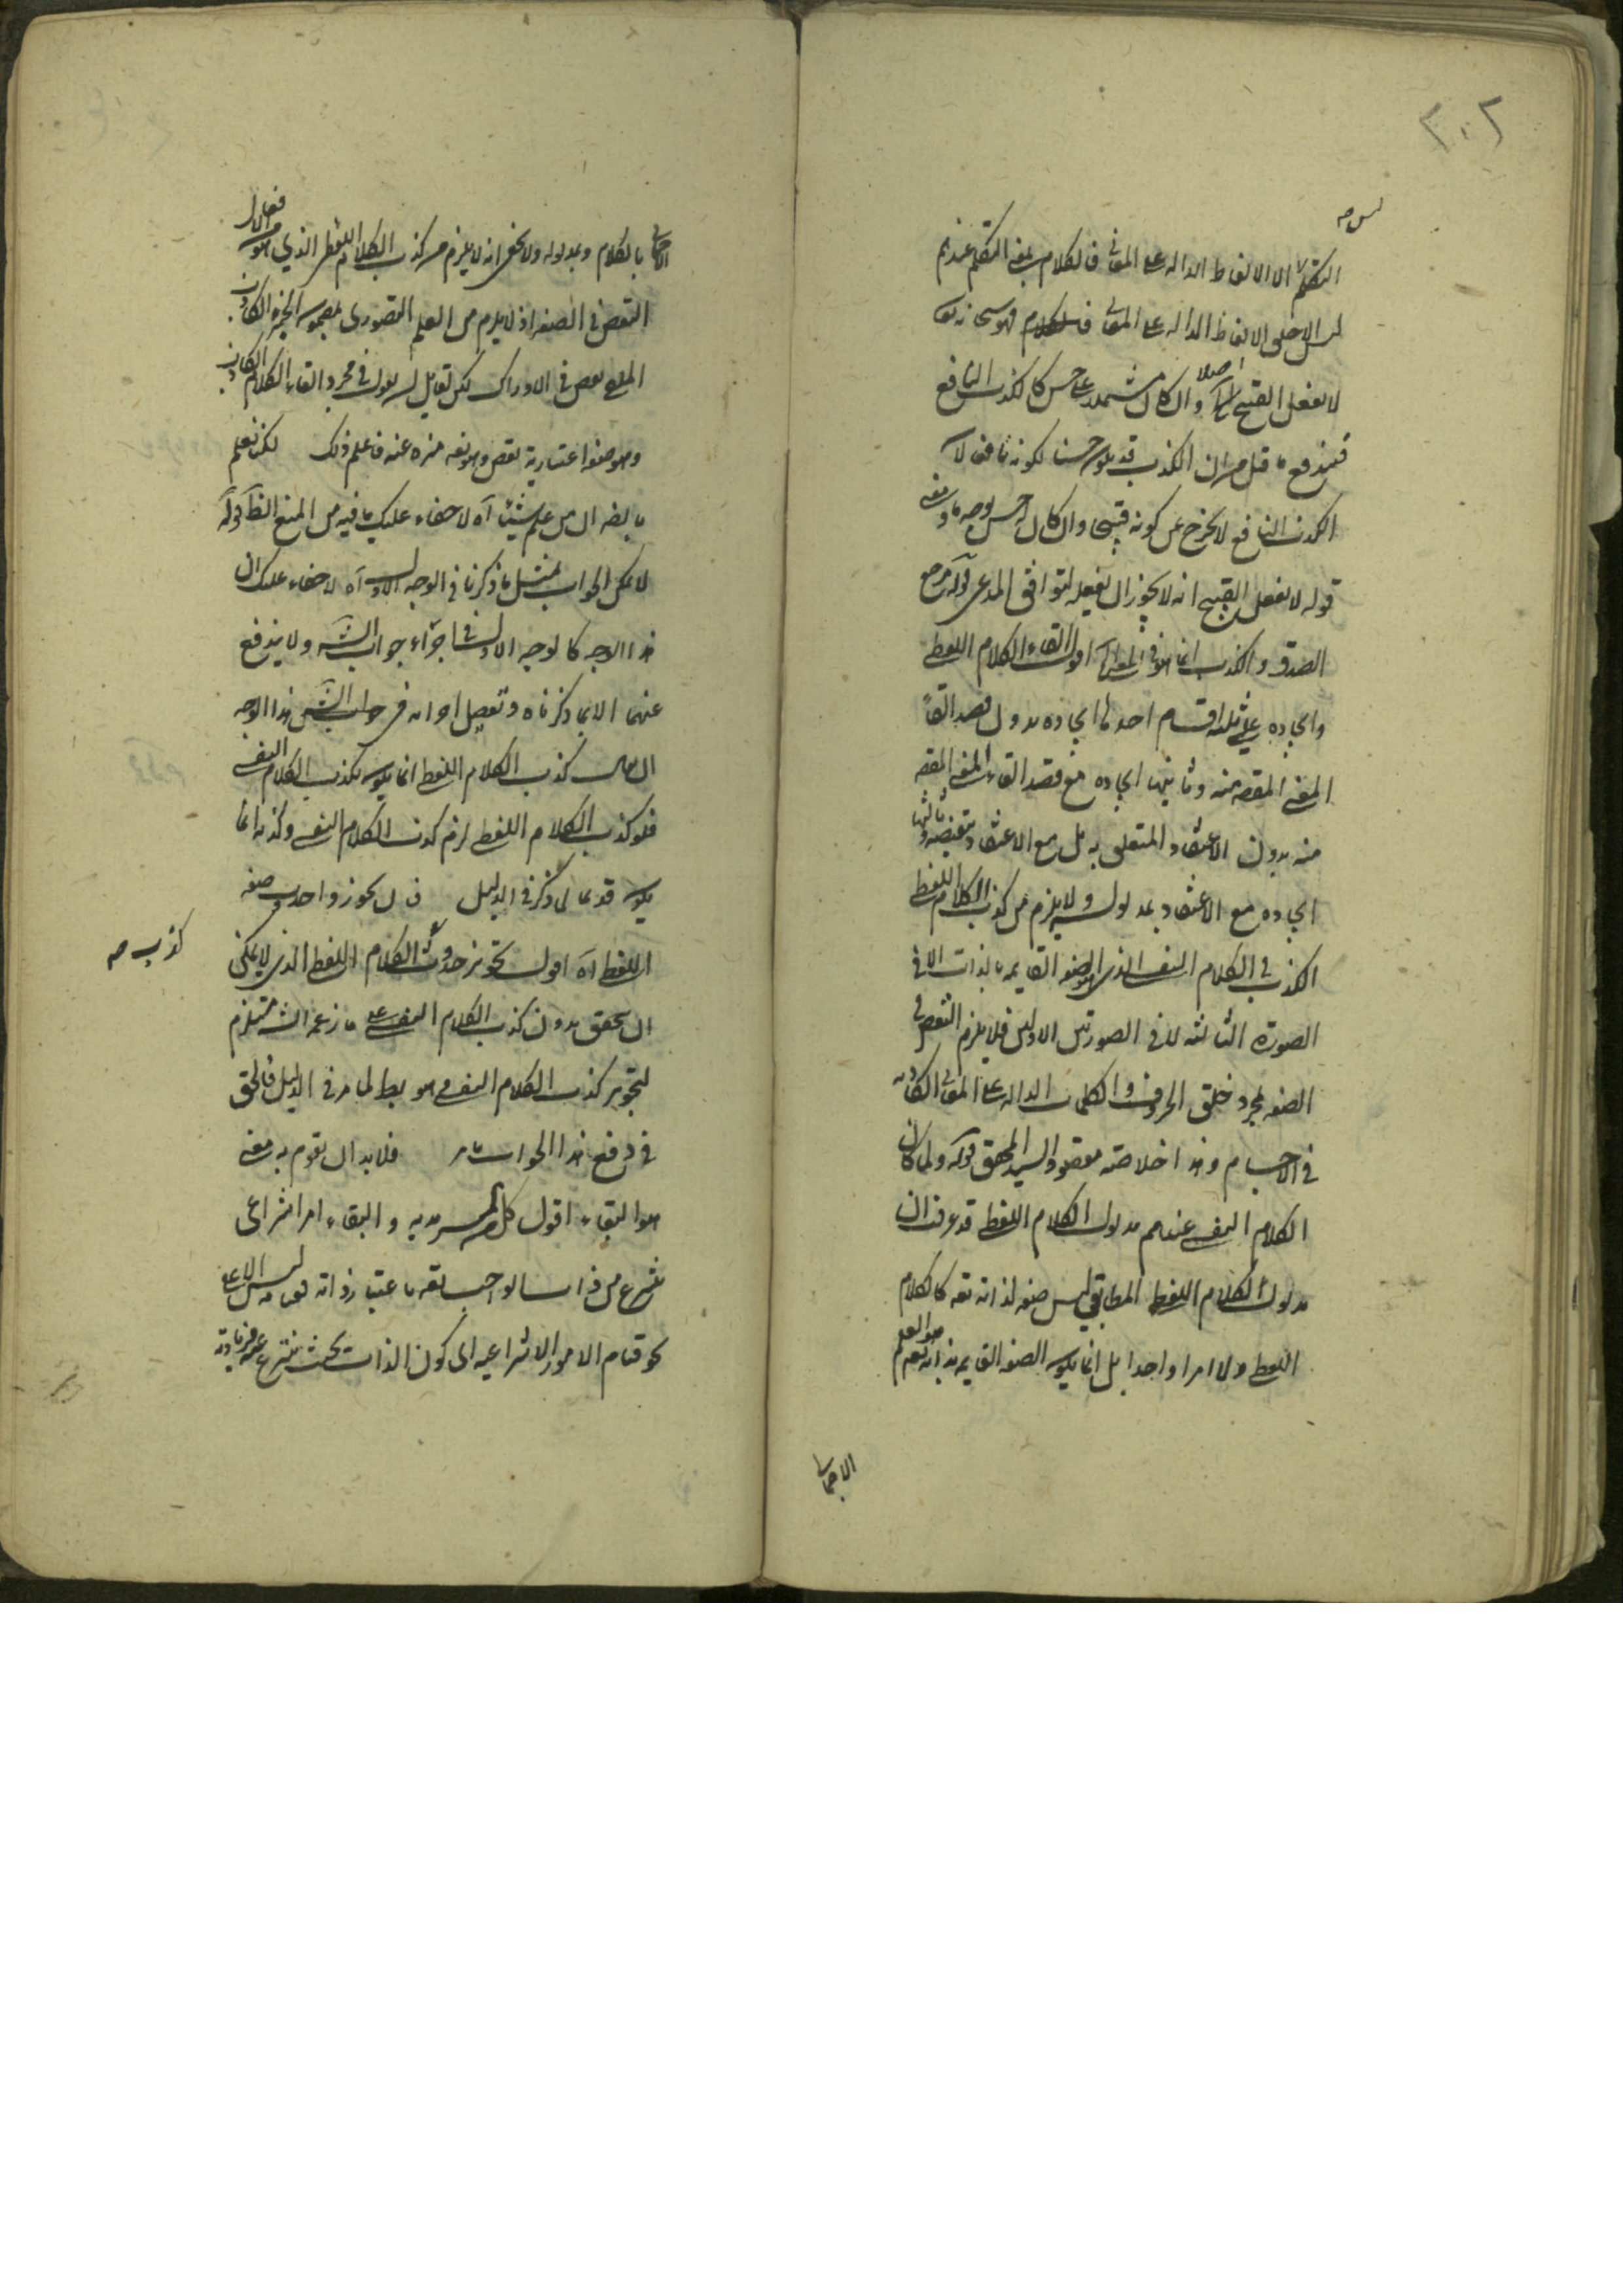 ٢٠٢
ليس صه
التكلم الا الالفاظ الداله على المعانى فالكلام بمعنى التكلم عندهم
ليس الا خلق الالفاظ الداله على المعانى فالكلام
لا يفعل القبيح اصلا وان كان مشتملا على حسن كالكذب النافع
فيندفع ما قيل من ان الكذب قد يكون حسنا لكونه نافعا لان
الكذب النافع لا يخرج عن كونه قبيحا وان كان حسن بوجه ما ومعنى
قوله لا يفعل القبيح انه لا يجوز ان يفعله ليوافق المدعى قوله مرجع
الصدق والكذب انما هو فى المعنى اقول القاء الكلام اللفظى
وايجاده على ثلثه اقسام احدها ايجاده بدون قصد القاء
المعنى المقصود منه وثانيها ايجاده مع قصد القاء المعنى المقصود
منه بدون الاعتقاد المتعلق به بل مع الاعتقاد بنقيضه وثالثها
ايجاده مع الاعتقاد بمدلوله ولا يلزم من كذب الكلام اللفظى
الكذب فى الكلام النفسى الذى هو الصفه القايمه بالذات الا فى
الصورة الثالثه لا فى الصورتين الاوليين فلا يلزم النقص فى
الصفه بمجرد خلق الحروف والكلمات الداله على المعانى الكاذبه
فى الاجسام وهذا خلاصة مقصود السيد المحقق قوله ولما كان
الكلام النفسى عندهم مدلول الكلام اللفظى قد عرفت ان
مدلول الكلام اللفظى المطابقى ليس صفه لذاته تعه كالكلام
اللفظى ولا امرا واحدا بل انما يكون الصفه القايمه بذاته تعم هو العلم
الاجمالى
الاجمالى بالكلام وبمدلوله ولا يخفى انه لا يلزم من كذب الكلام اللفظى الذى هو من الافعال
النقص فى الصفه اذ لا يلزم من العلم التصورى بمضمون الخبر الكاذب
الملقى نقص فى الادراك لكن لقايل ان يقول فى مجرد القاء الكلام الكاذب
وهو صفه اعتبارية نقص وهو تعه منزه عنه فاعلم ذلك لكنا نعلم
بالضه ان من علم شيئا آه لا خفاء عليك ما فيه من المنع الظ قوله
لا يمكن الجواب بمثل ما ذكرنا فى الوجه الاول آه لا خفاء عليك ان
هذا الوجه كالوجه الاول فى اجراء جواب الشه ولا يندفع
عنهما الا بما ذكرناه وتفصيل اجرائه فى جواب الشه فى هذا الوجه
ان يقال كذب الكلام اللفظى انما يكون بكذب الكلام النفسى
فلو كذب الكلام اللفظى لزم كذب الكلام النفسى وكذبه انما
يكون قديما لما ذكر فى الدليل فان لم يجوز واحدوث صفه
كذب صه
اللفظى آه اقول تجويز حدوث الكلام اللفظى الذى لا يمكن
ان يتحقق بدون كذب الكلام النفسى على ما زعمه الشه مستلزم
لتجويز كذب الكلام النفسى وهو بط لما مر فى الدليل فالحق
فى دفع هذا الجواب ما مر فلا بد ان يقوم به معنى
هو البقاء اقول كل من السرمدية والبقاء امر انتزاعى
ينتزع من ذات الواجب تعه باعتبار ذاته ليس الا على
نحو قيام الامور الانتزاعيه اى كون الذات بحيث ينتزع عنه